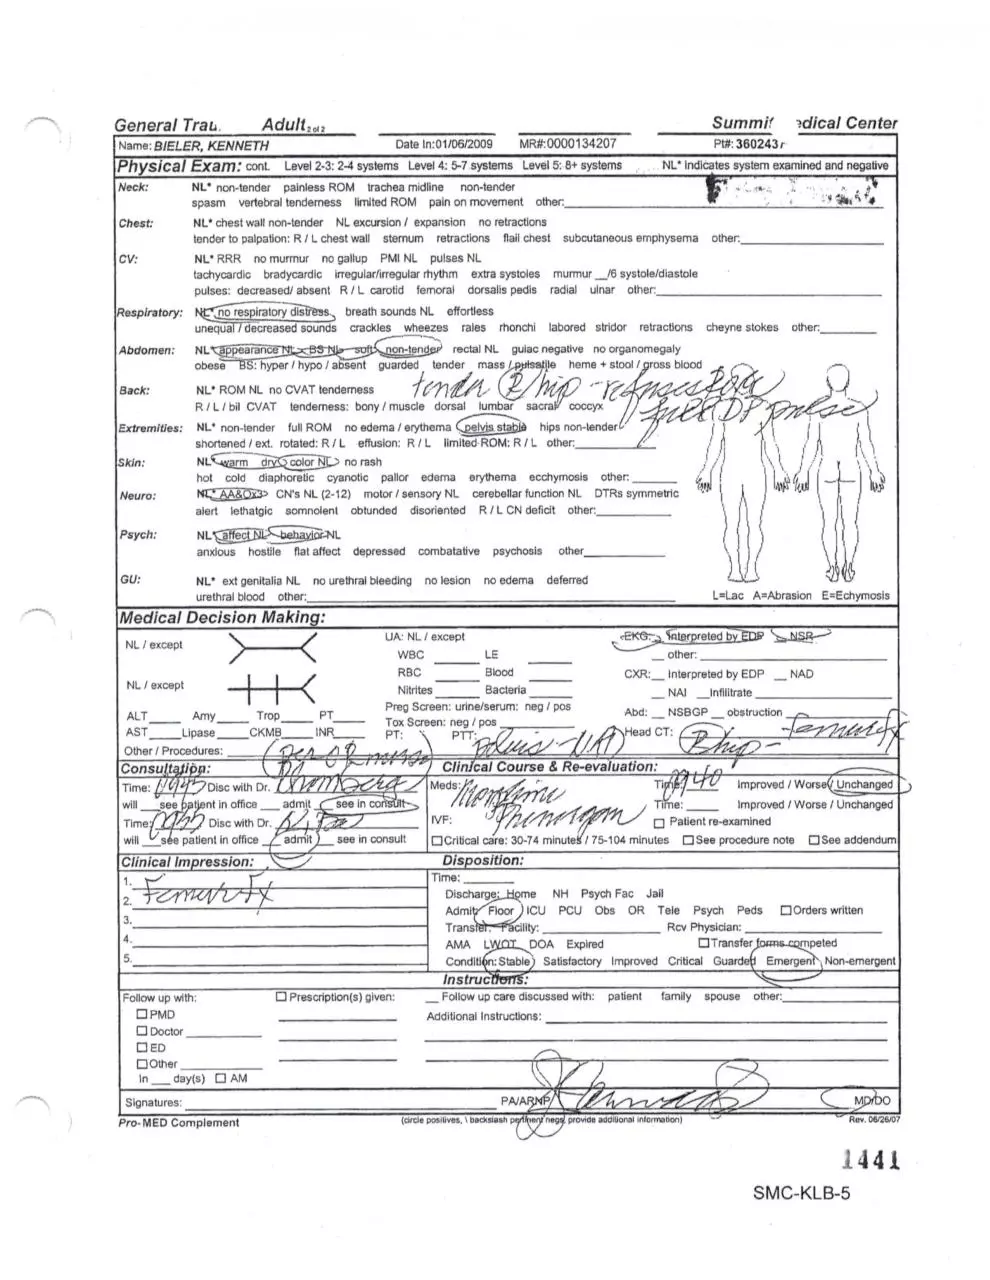 General Trau. Adult 2 of 2 Summit edical Center
Name: BIELER, KENNETH Date In:01/06/2009 MR#:0000134207 Pt#: 360243
Physical Exam: cont. Level 2-3: 2-4 systems Level 4: 5-7 systems Level 5: 8+ systems NL* indicates system examined and negative
Neck: NL* non-tender painless ROM trachea midline non-tender
spasm vertebral tenderness limited ROM pain on movement other:
Chest: NL* chest wall non-tender NL excursion / expansion no retractions
tender to palpation: R / L chest wall sternum retractions flail chest subcutaneous emphysema other:
CV: NL* RRR no murmur no gallup PMI NL pulses NL
tachycardic bradycardic irregular/irregular rhythm extra systoles murmur __/6 systole/diastole
pulses: decreased/ absent R / L carotid femoral dorsalis pedis radial ulnar other:
Respiratory: NL* no respiratory distress breath sounds NL effortless
unequal / decreased sounds crackles wheezes rales rhonchi labored stridor retractions cheyne stokes other:
Abdomen: NL* appearance NL BS NL soft non-tender rectal NL guiac negative no organomegaly
obese BS: hyper / hypo / absent guarded tender mass / pulsatile heme + stool / gross blood
tender R hip - refuses ROM
Back: NL* ROM NL no CVAT tenderness
R / L / bil CVAT tenderness: bony / muscle dorsal lumbar sacral coccyx
DP pulse
Extremities: NL* non-tender full ROM no edema / erythema pelvis stable hips non-tender
shortened / ext. rotated: R / L effusion: R / L limited ROM: R / L other:
Skin: NL* warm dry color NL no rash
hot cold diaphoretic cyanotic pallor edema erythema ecchymosis other:
Neuro: NL* AA&Ox3 CN's NL (2-12) motor / sensory NL cerebellar function NL DTRs symmetric
alert lethatgic somnolent obtunded disoriented R / L CN deficit other:
Psych: NL* affect NL behavior NL
anxious hostile flat affect depressed combatative psychosis other
GU: NL* ext genitalia NL no urethral bleeding no lesion no edema deferred
urethral blood other:
L=Lac A=Abrasion E=Echymosis
Medical Decision Making:
NL / except UA: NL / except EKG: Interpreted by EDP NSR
WBC LE other:
RBC Blood CXR: Interpreted by EDP NAD
NL / except Nitrites Bacteria NAI Infilitrate
Preg Screen: urine/serum: neg / pos Abd: NSBGP obstruction
ALT Amy Trop PT Tox Screen: neg / pos
AST Lipase CKMB INR PT: PTT: Head CT: R hip - femur fx
Other / Procedures:
Consultation: Clinical Course & Re-evaluation:
Time: 0945 Disc with Dr. Meds: Morphine Time: 0940 Improved / Worse / Unchanged
will see patient in office admit see in consult Phenergan Time: Improved / Worse / Unchanged
Time: 0955 Disc with Dr. IVF: Patient re-examined
will see patient in office admit see in consult Critical care: 30-74 minutes / 75-104 minutes See procedure note See addendum
Clinical Impression: Disposition:
1. Time:
2. Femur Fx Discharge: Home NH Psych Fac Jail
3. Admit: Floor ICU PCU Obs OR Tele Psych Peds Orders written
Transfer: Facility: Rcv Physician:
4. AMA LWOT DOA Expired Transfer forms competed
5. Condition: Stable Satisfactory Improved Critical Guarded Emergent Non-emergent
Instructions:
Follow up with: Prescription(s) given: Follow up care discussed with: patient family spouse other:
PMD Additional Instructions:
Doctor
ED
Other
In ___ day(s) AM
Signatures: PA/ARNP MD/DO
Pro-MED Complement (circle positives, \ backslash pertinent negs, provide additional information) Rev. 06/26/07
1441
SMC-KLB-5